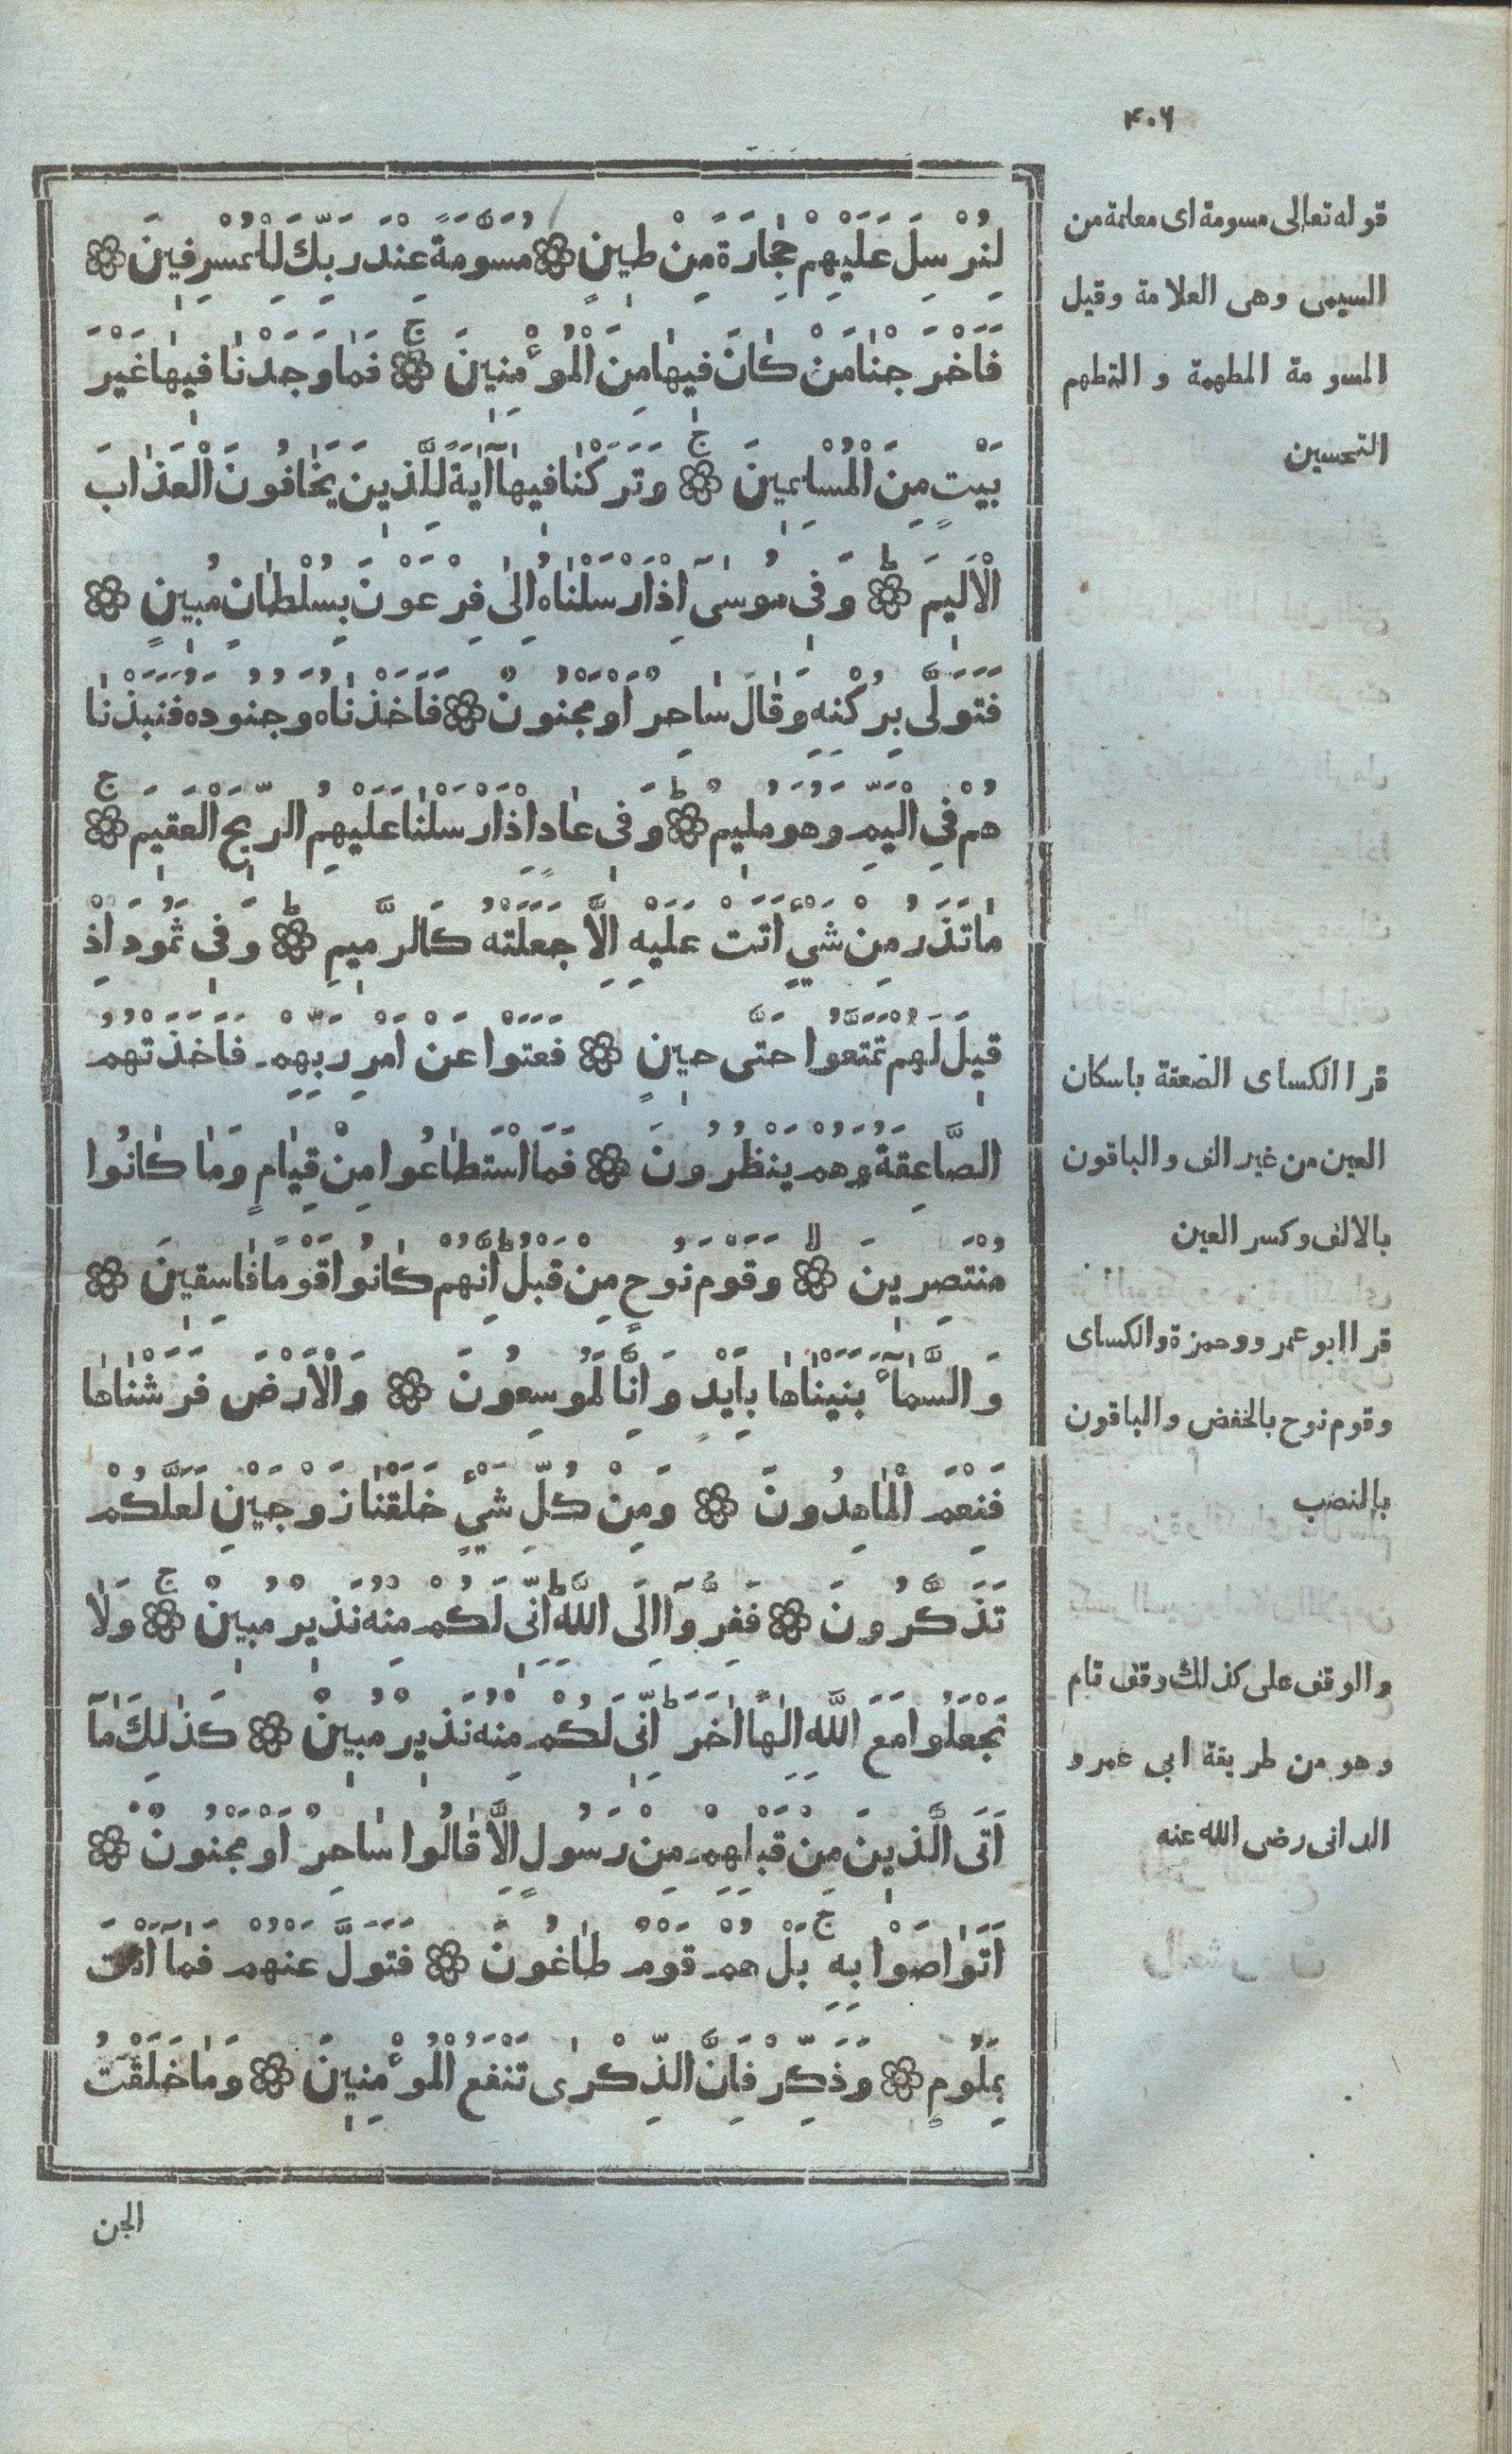 ۴۰۶
لِنُرْسِلَ عَلَيْهِمْ حِجَارَةً مِنْ طِينٍ ۞ مُسَوَّمَةً عِنْدَ رَبِّكَ لِلْمُسْرِفِينَ ۞
فَأَخْرَجْنَا مَنْ كَانَ فِيهَا مِنَ الْمُؤْمِنِينَ ۞ ج فَمَا وَجَدْنَا فِيهَا غَيْرَ
بَيْتٍ مِنَ الْمُسْلِمِينَ ۞ ج وَتَرَكْنَا فِيهَا آيَةً لِلَّذِينَ يَخَافُونَ الْعَذَابَ
الْاَلِيمَ ۞ ط وَفِي مُوسَىٓ اِذْ اَرْسَلْنَاهُ اِلٰى فِرْعَوْنَ بِسُلْطَانٍ مُبِينٍ ۞
فَتَوَلّٰى بِرُكْنِهِ وَقَالَ سَاحِرٌ اَوْ مَجْنُونٌ ۞ فَاَخَذْنَاهُ وَجُنُودَهُ فَنَبَذْنَا
هُمْ فِي الْيَمِّ وَهُوَ مُلِيمٌ ۞ ط وَفِي عَادٍ اِذْ اَرْسَلْنَا عَلَيْهِمُ الرِّيحَ الْعَقِيمَ ۞ ج
مَا تَذَرُ مِنْ شَيْءٍ اَتَتْ عَلَيْهِ اِلَّا جَعَلَتْهُ كَالرَّمِيمِ ۞ ط وَفِي ثَمُودَ اِذْ
قِيلَ لَهُمْ تَمَتَّعُوا حَتّٰى حِينٍ ۞ فَعَتَوْا عَنْ اَمْرِ رَبِّهِمْ فَاَخَذَتْهُمُ
الصَّاعِقَةُ وَهُمْ يَنْظُرُونَ ۞ فَمَا اسْتَطَاعُوا مِنْ قِيَامٍ وَمَا كَانُوا
مُنْتَصِرِينَ ۞ لا وَقَوْمَ نُوحٍ مِنْ قَبْلُ ط اِنَّهُمْ كَانُوا قَوْمًا فَاسِقِينَ ۞
وَالسَّمَآءَ بَنَيْنَاهَا بِاَيْدٍ وَاِنَّا لَمُوسِعُونَ ۞ وَالْاَرْضَ فَرَشْنَاهَا
فَنِعْمَ الْمَاهِدُونَ ۞ وَمِنْ كُلِّ شَيْءٍ خَلَقْنَا زَوْجَيْنِ لَعَلَّكُمْ
تَذَكَّرُونَ ۞ فَفِرُّوآ اِلَى اللّٰهِ ط اِنِّي لَكُمْ مِنْهُ نَذِيرٌ مُبِينٌ ۞ ج وَلَا
تَجْعَلُوا مَعَ اللّٰهِ اِلٰهًا اٰخَرَ ط اِنِّي لَكُمْ مِنْهُ نَذِيرٌ مُبِينٌ ۞ كَذٰلِكَ مَآ
اَتَى الَّذِينَ مِنْ قَبْلِهِمْ مِنْ رَسُولٍ اِلَّا قَالُوا سَاحِرٌ اَوْ مَجْنُونٌ ۞
اَتَوَاصَوْا بِهِ ج بَلْ هُمْ قَوْمٌ طَاغُونَ ۞ فَتَوَلَّ عَنْهُمْ فَمَآ اَنْتَ
بِمَلُومٍ ۞ وَذَكِّرْ فَاِنَّ الذِّكْرٰى تَنْفَعُ الْمُؤْمِنِينَ ۞ وَمَا خَلَقْتُ
الجن
قوله تعالى مسومة اى معلمة من
السيمى وهى العلامة وقيل
المسومة المطهمة و التطهم
التحسين
قرا الكساى الصعقة باسكان
العين من غير الف والباقون
بالالف وكسر العين
قرا ابو عمرو وحمزة والكساى
وقوم نوح بالخفض والباقون
بالنصب
والوقف على كذلك وقف تام
وهو من طريقة ابى عمرو
الدانى رضى الله عنه